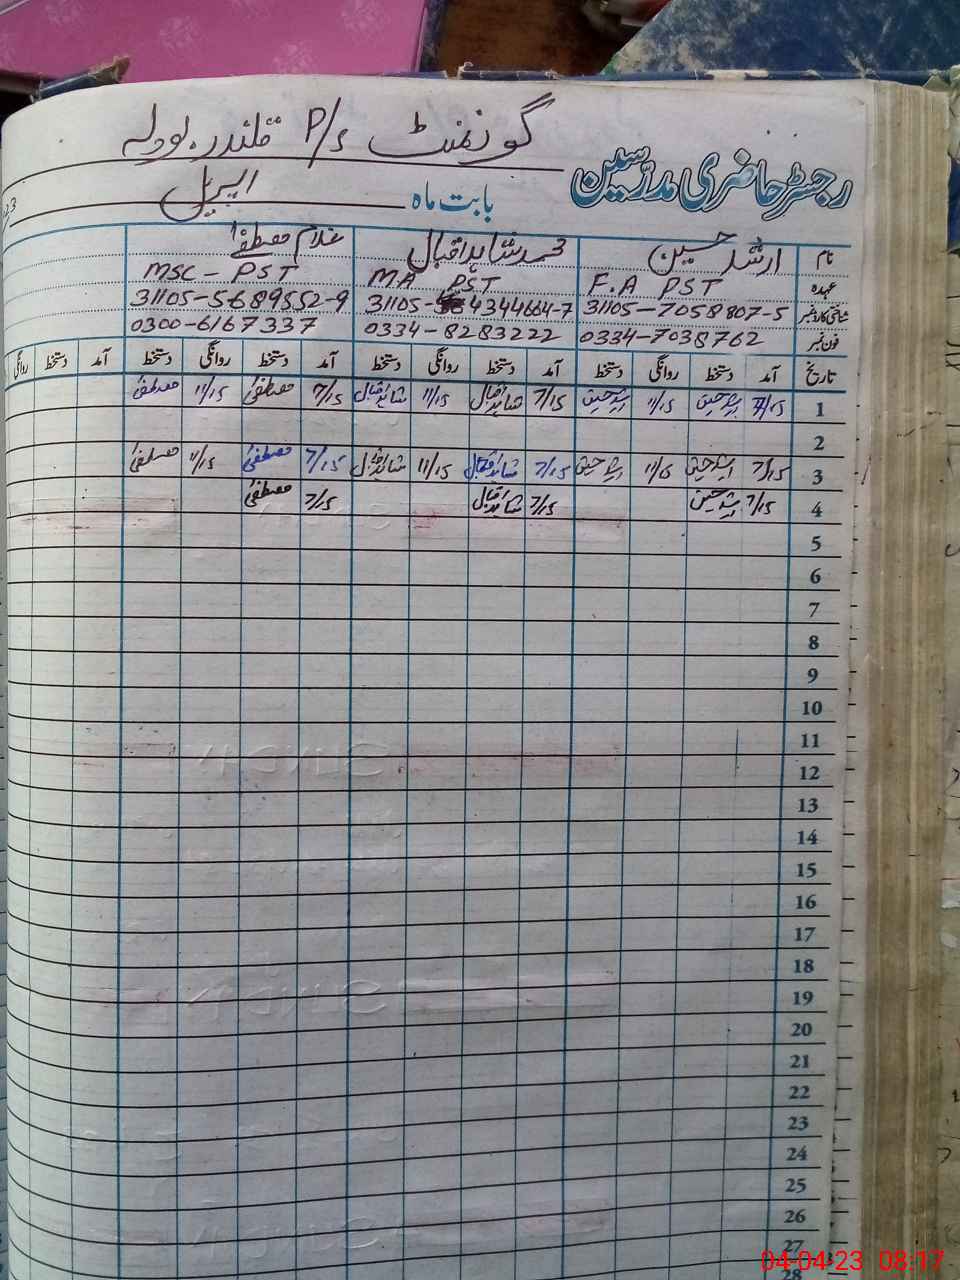 گورنمنٹ P/s قلندر بودلہ
رجسٹر حاضری مدرسین
بابت ماہ اپریل
نام ارشد حسین محمد شاہد اقبال غلام مصطفیٰ
عہدہ F.A PST MA PST MSC - PST
شناختی کارڈ نمبر 31105-7058807-5 31105-4344664-7 31105-5689552-9
فون نمبر 0334-7038762 0334-8283222 0300-6167337
تاریخ آمد دستخط روانگی دستخط آمد دستخط روانگی دستخط آمد دستخط روانگی دستخط آمد دستخط روانگی
1 7/15 ارشد حسین 11/15 ارشد حسین 7/15 شاہد اقبال 11/15 شاہد اقبال 7/15 مصطفیٰ 11/15 مصطفیٰ
2
3 7/15 ارشد حسین 11/15 ارشد حسین 7/15 شاہد اقبال 11/15 شاہد اقبال 7/15 مصطفیٰ 11/15 مصطفیٰ
4 7/15 ارشد حسین 7/15 شاہد اقبال 7/15 مصطفیٰ
5
6
7
8
9
10
11
12
13
14
15
16
17
18
19
20
21
22
23
24
25
26
27
28
04-04-23 08:17